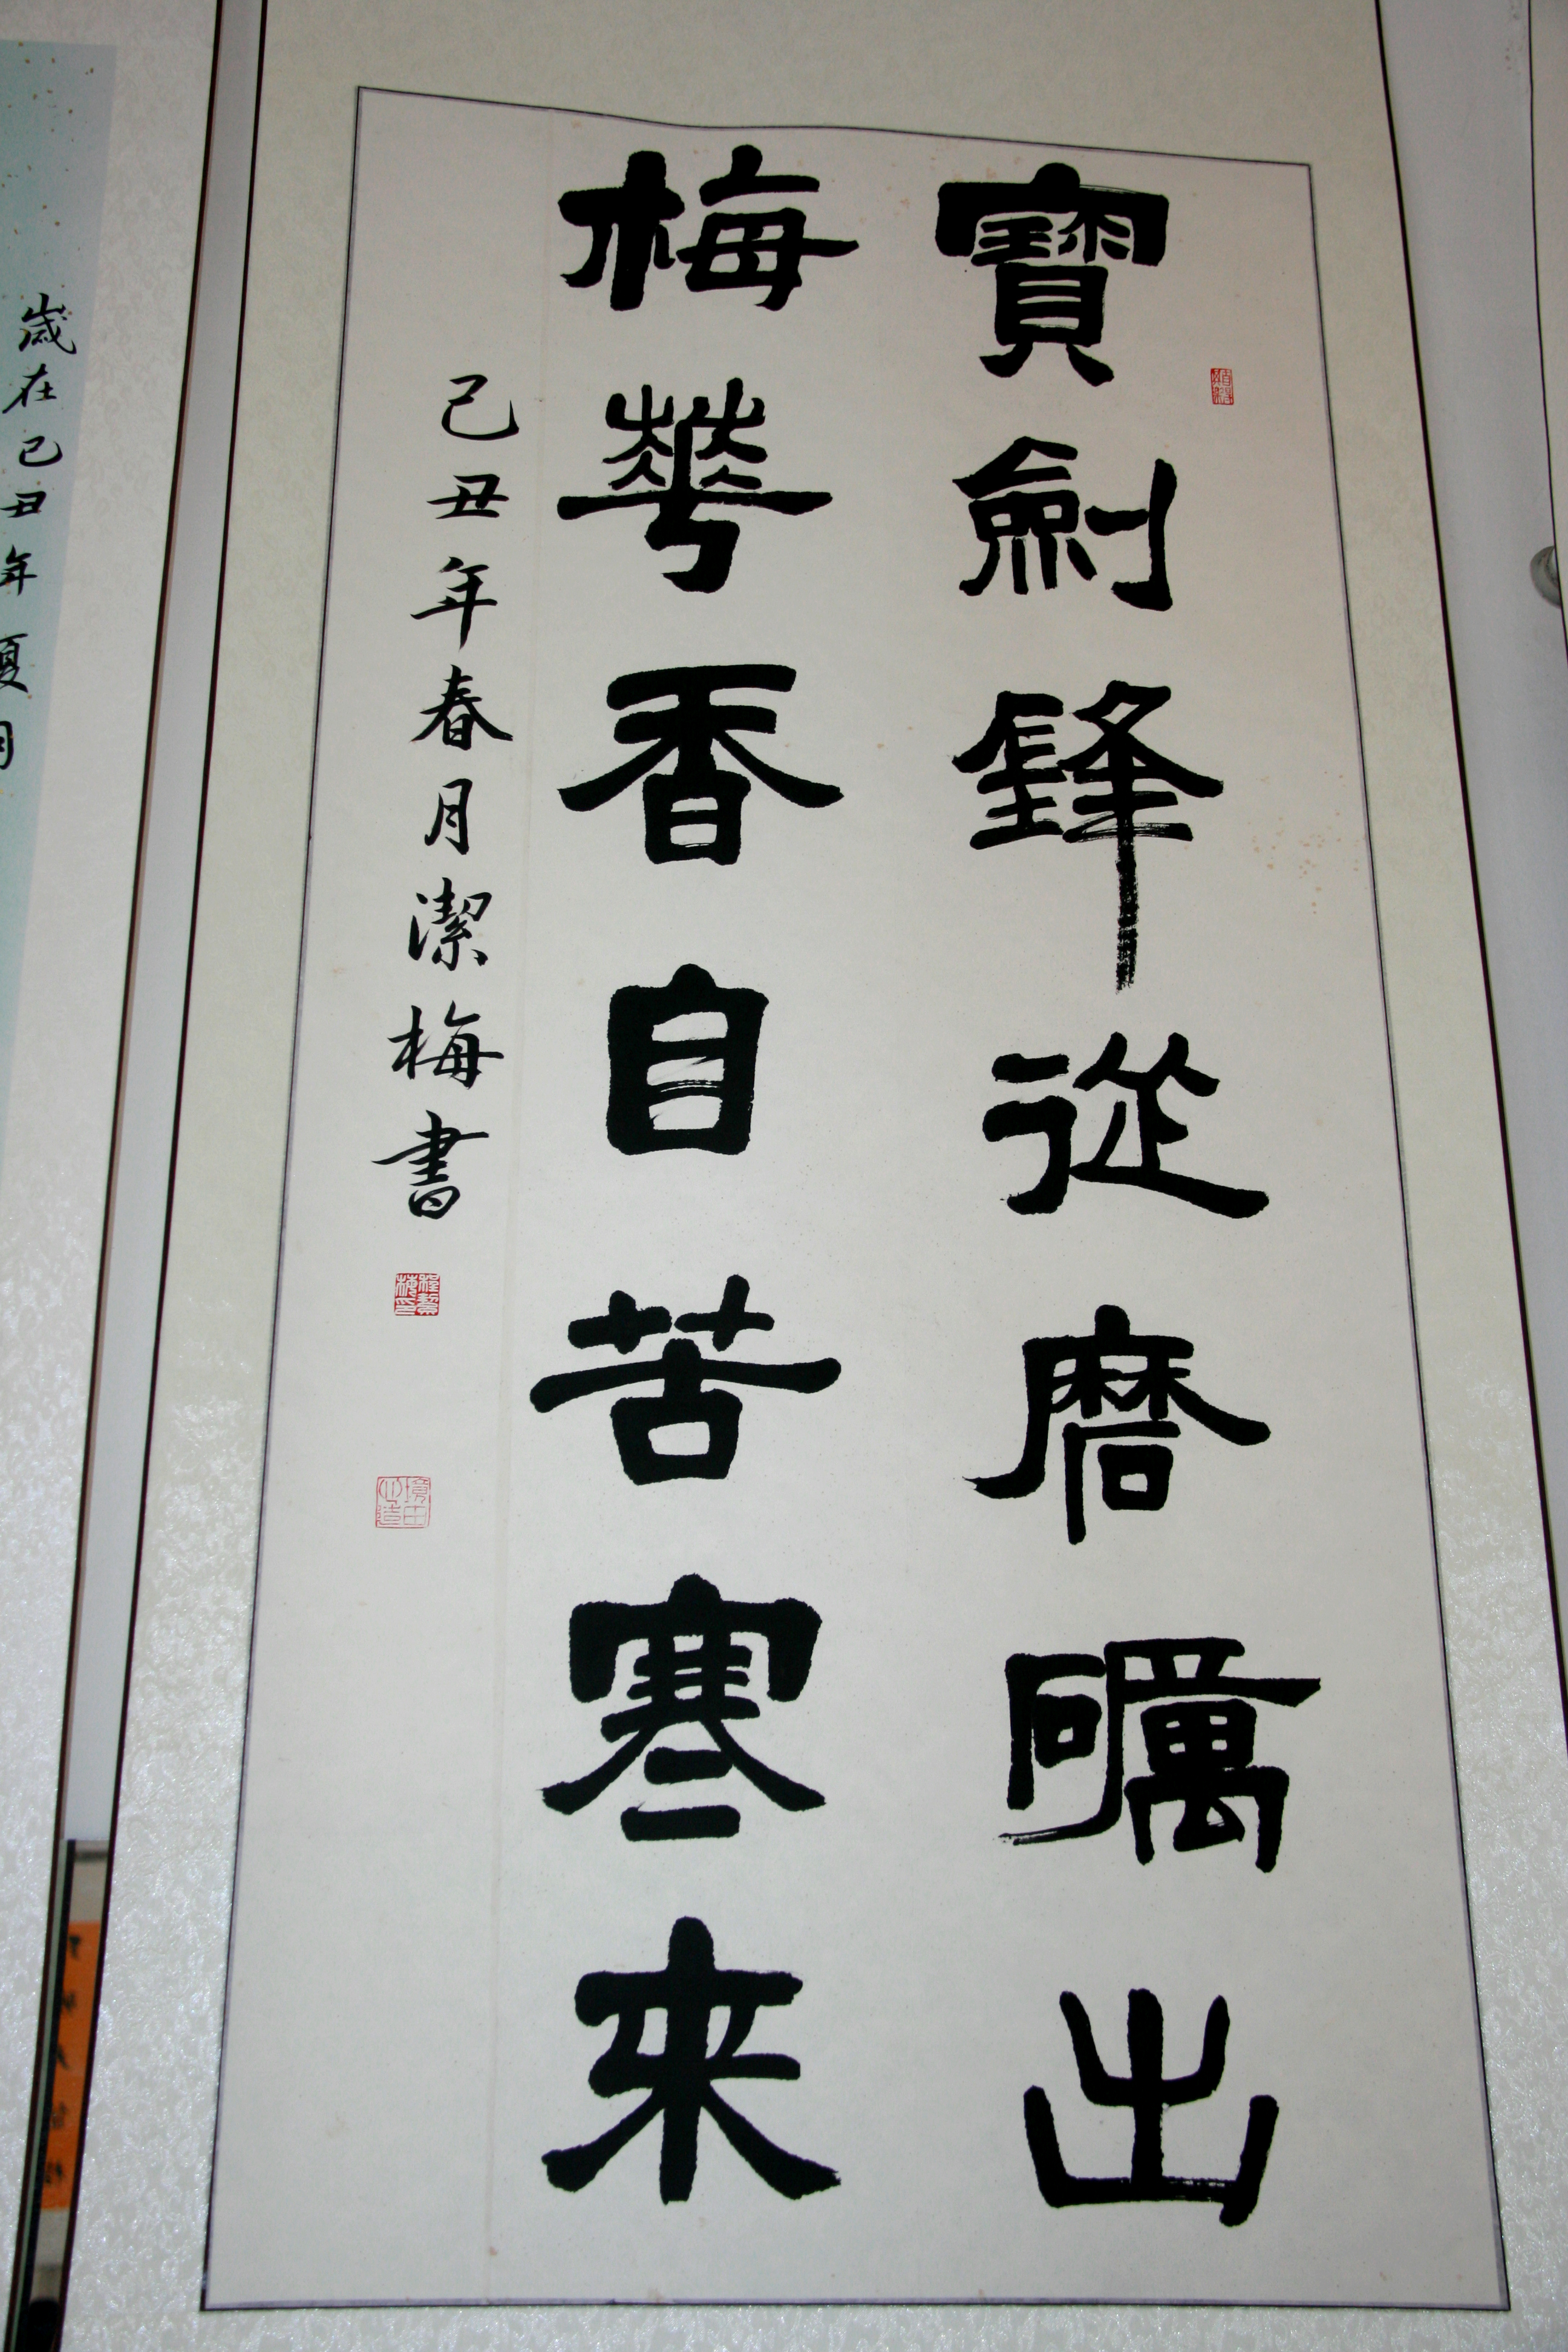 寶劍鋒從磨礪出
梅華香自苦寒来
己丑年春月潔梅書
歲在己丑年夏月